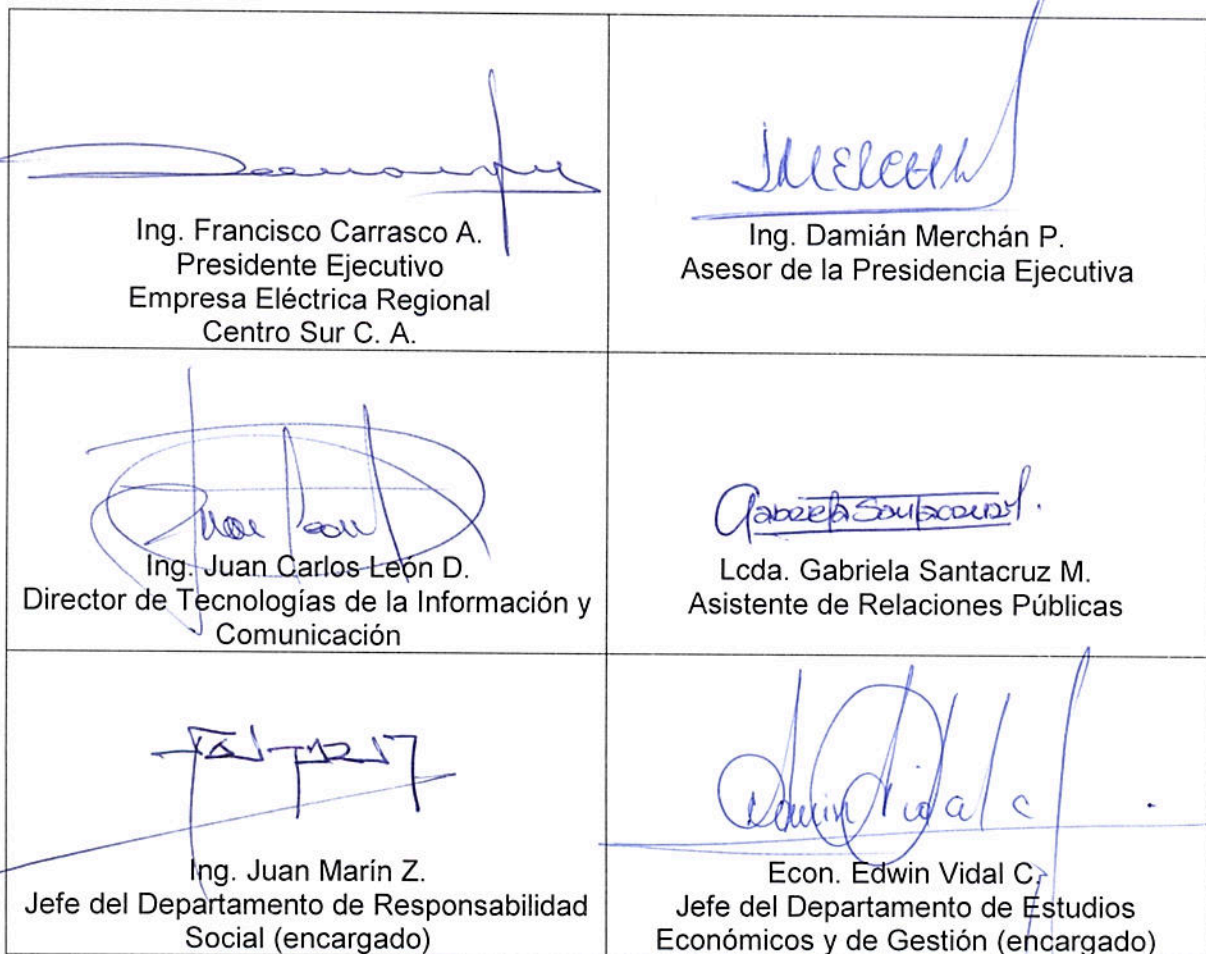 Ing. Francisco Carrasco A.
Presidente Ejecutivo
Empresa Eléctrica Regional
Centro Sur C. A.
Ing. Damián Merchán P.
Asesor de la Presidencia Ejecutiva
Juan León
Ing. Juan Carlos León D.
Director de Tecnologías de la Información y
Comunicación
Gabriela Santacruz.
Lcda. Gabriela Santacruz M.
Asistente de Relaciones Públicas
Ing. Juan Marín Z.
Jefe del Departamento de Responsabilidad
Social (encargado)
Edwin Vidal C.
Econ. Edwin Vidal C.
Jefe del Departamento de Estudios
Económicos y de Gestión (encargado)